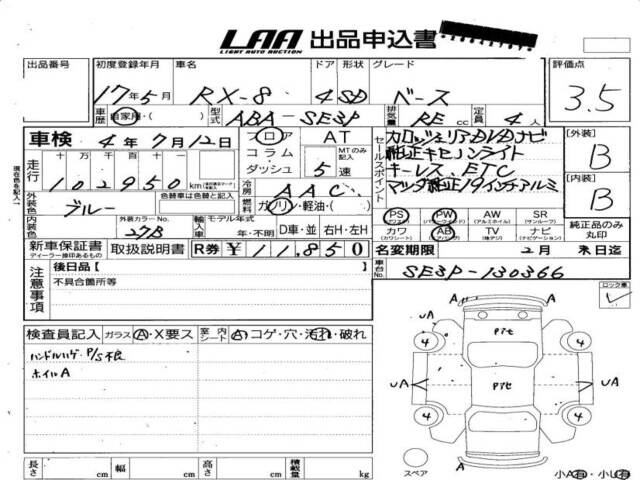 LAA 出品申込書
LIGHT AUTO AUCTION
出品番号 初度登録年月 車名 ドア 形状 グレード 評価点
17年5月 RX-8 4 SD ベース 3.5
車歴 自家用・( ) 型式 ABA-SE3P 排気量 RE cc 定員 4人
車検 4年7月12日 フロア AT セールスポイント カロッツェリアDVDナビ [外装]
コラム MTのみ記入 純正キセノンライト B
ダッシュ 5速 キーレス、ETC
走行 十万千百十一 102950 km 冷房 AAC マツダ純正19インチアルミ [内装]
現在色を記入 外装色 ブルー 色替車は色替と記入 燃料 ガソリン・軽油・( ) B
PS PW AW SR
(パワーウインドウ) (アルミホイル) (サンルーフ) 純正品のみ丸印
内装色 外装カラーNo. 27B 輸入車 モデル年式 年・不明 D車・並 右H・左H カワ AB TV ナビ
(カワシート) (エアバッグ) (地デジ) (ナビゲーション)
新車保証書 取扱説明書 R券 ¥11,850 名変期限 2月末日迄
ディーラー捺印あるもの
車台No. SE3P-130366
注意事項 後日品[ ]
不具合箇所等
ロック車
検査員記入 ガラス A・X要ス 室内シート A コゲ・穴・汚れ・破れ
ハンドルハゲ P/S不良
ホイルA
A A
UA UA
Pイセ
4 4
UA Pイセ UA
4 4
A A
スペア 小A有・小U有
長さ cm 幅 cm 高さ cm 積載量 kg